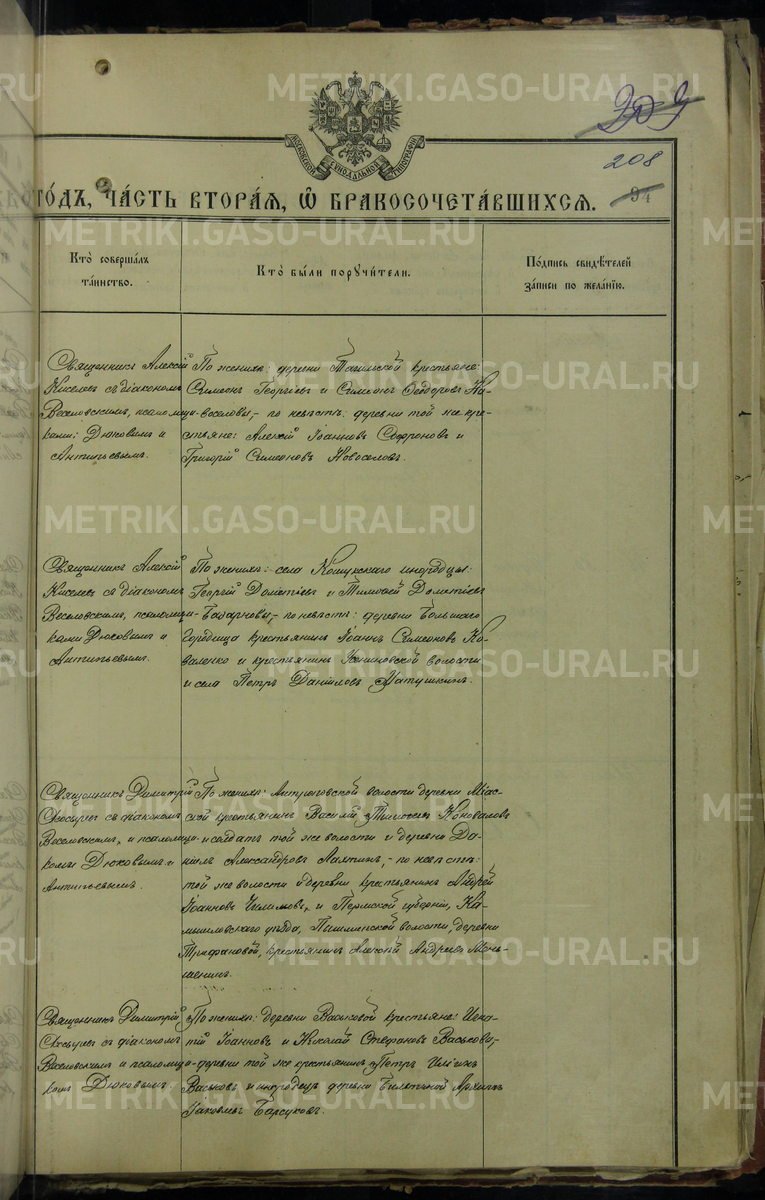 МОСКОВСКОЙ СѴНОДАЛЬНОЙ ТИПОГРАФІИ
209
208
94
ГО́ДЪ, ЧА́СТЬ ВТОРА́Я, Ѡ БРАКОСОЧЕТА́ВШИХСЯ.
Кто̀ соверша́лъ
та́инство.
Кто̀ бы́ли поручи́тели.
По́дпись свидѣ́телей
за́писи по жела́нїю.
Священникъ Алексій
Киселевъ съ діакономъ
Веселовскимъ, псаломщи-
ками: Дюковымъ и
Антипьевымъ.
По женихѣ: деревни Тагильской крестьяне:
Симеонъ Георгіевъ и Симеонъ Ѳеодоровъ Но-
воселовы,- по невѣстѣ: деревни той же кре-
стьяне: Алексій Іоанновъ Софроновъ и
Григорій Симеоновъ Новоселовъ.
Священникъ Алексій
Киселевъ съ діакономъ
Веселовскимъ, псаломщи-
ками Дюковымъ и
Антипьевымъ.
По женихѣ: села Кошукскаго инородцы:
Георгій Дометіевъ и Тимоѳей Дометіевъ
по невѣстѣ: деревни Большаго
Городища крестьянинъ Іоаннъ Симеоновъ Ко-
валенко и крестьянинъ волости
и села Петръ Даниловъ Матушкинъ.
Священникъ Димитрій
съ діакономъ
Веселовскимъ, и псаломщи-
ками Дюковымъ и
Антипьевымъ.
По женихѣ: Антроповской волости деревни Міас-
ской крестьянинъ Василій Тимоѳеевъ Коноваловъ
и солдатъ той же волости и деревни Да-
ніилъ Александровъ Лаптинъ,- по невѣстѣ:
той же волости и деревни крестьянинъ Андрей
Іоанновъ и Пермской губерніи, Ка-
мышловскаго уѣзда, Пышминской волости, деревни
Трифановой, крестьянинъ Алексій Андреевъ Мень-
шенинъ.
Священникъ Димитрій
съ діакономъ
Веселовскимъ и псаломщи-
комъ Дюковымъ.
По женихѣ: деревни Васьковой крестьяне: Игна-
тій Іоанновъ и Николай Стефановъ Васьковы,-
деревни той же крестьянинъ Петръ Ильинъ
Васьковъ и инородецъ деревни Архипъ
Іаковлевъ Барсуковъ.
METRIKI.GASO-URAL.RU